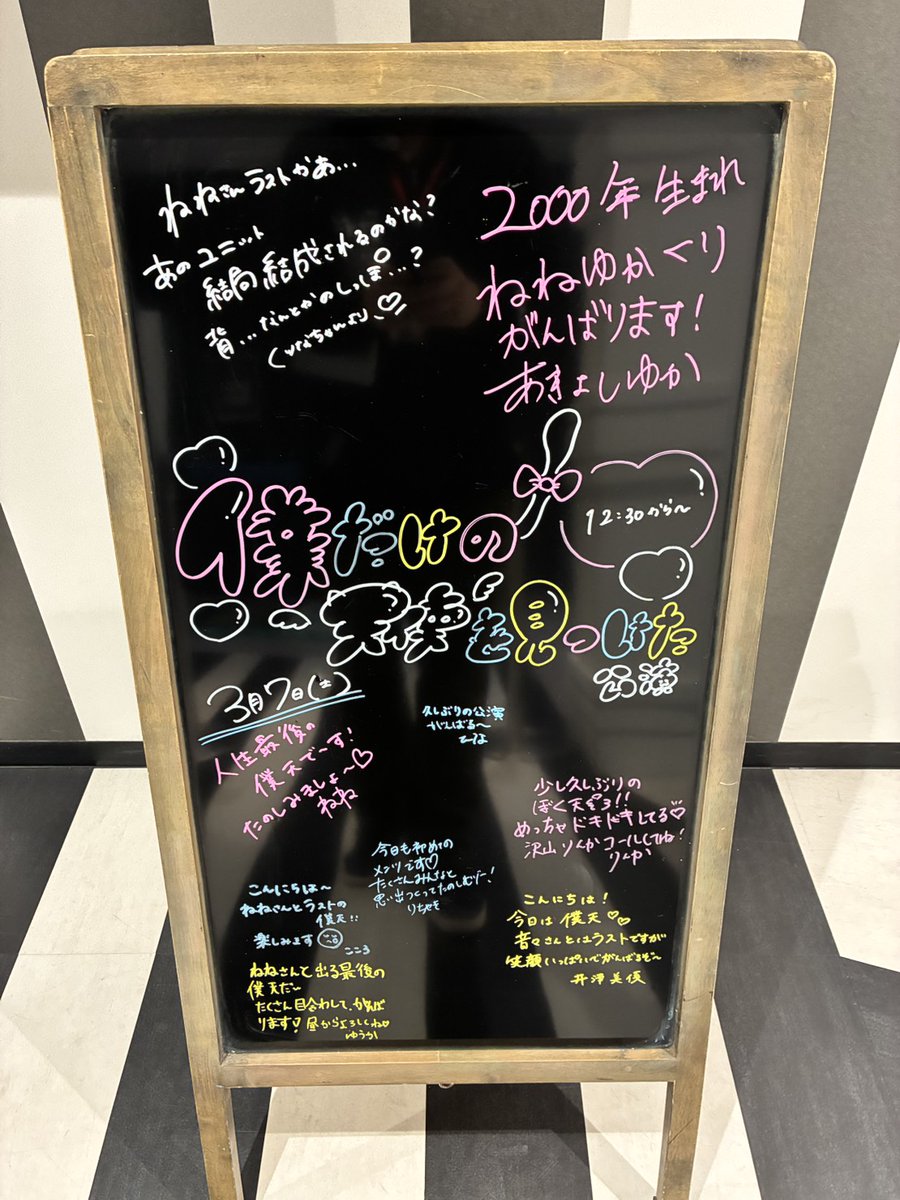 ねねさんラストかあ…
あのユニット
結局結成されるのかな?
背…なんとかのしっぽ…?
(ひなちゃんより)♡
2000年生まれ
ねねゆかぐり
がんばります!
あきよしゆか
僕だけの
12:30から〜
天使を見つけた
公演
3月7日(土)
人生最後の
僕天で〜す!
たのしみましょ〜♡
ねね
久しぶりの公演
がんばる〜
少し久しぶりの
ぼく天ぞろ!!
めっちゃドキドキしてる♡
沢山りんかコールしてね!
りんか
今日も初めての
メンツです♡
たくさんみんなと
思い出つくってたのしむぞー!
こんにちは〜
ねねさんとラストの
僕天!!
楽しみます
こころ
こんにちは!
今日は僕天♡♡
音々さんとはラストですが
笑顔いっぱいでがんばるぞ〜
井澤美優
ねねさんと出る最後の
僕天だ〜
たくさん目合わして、がんば
ります♡ 昼からよろしくね♡
ゆうか